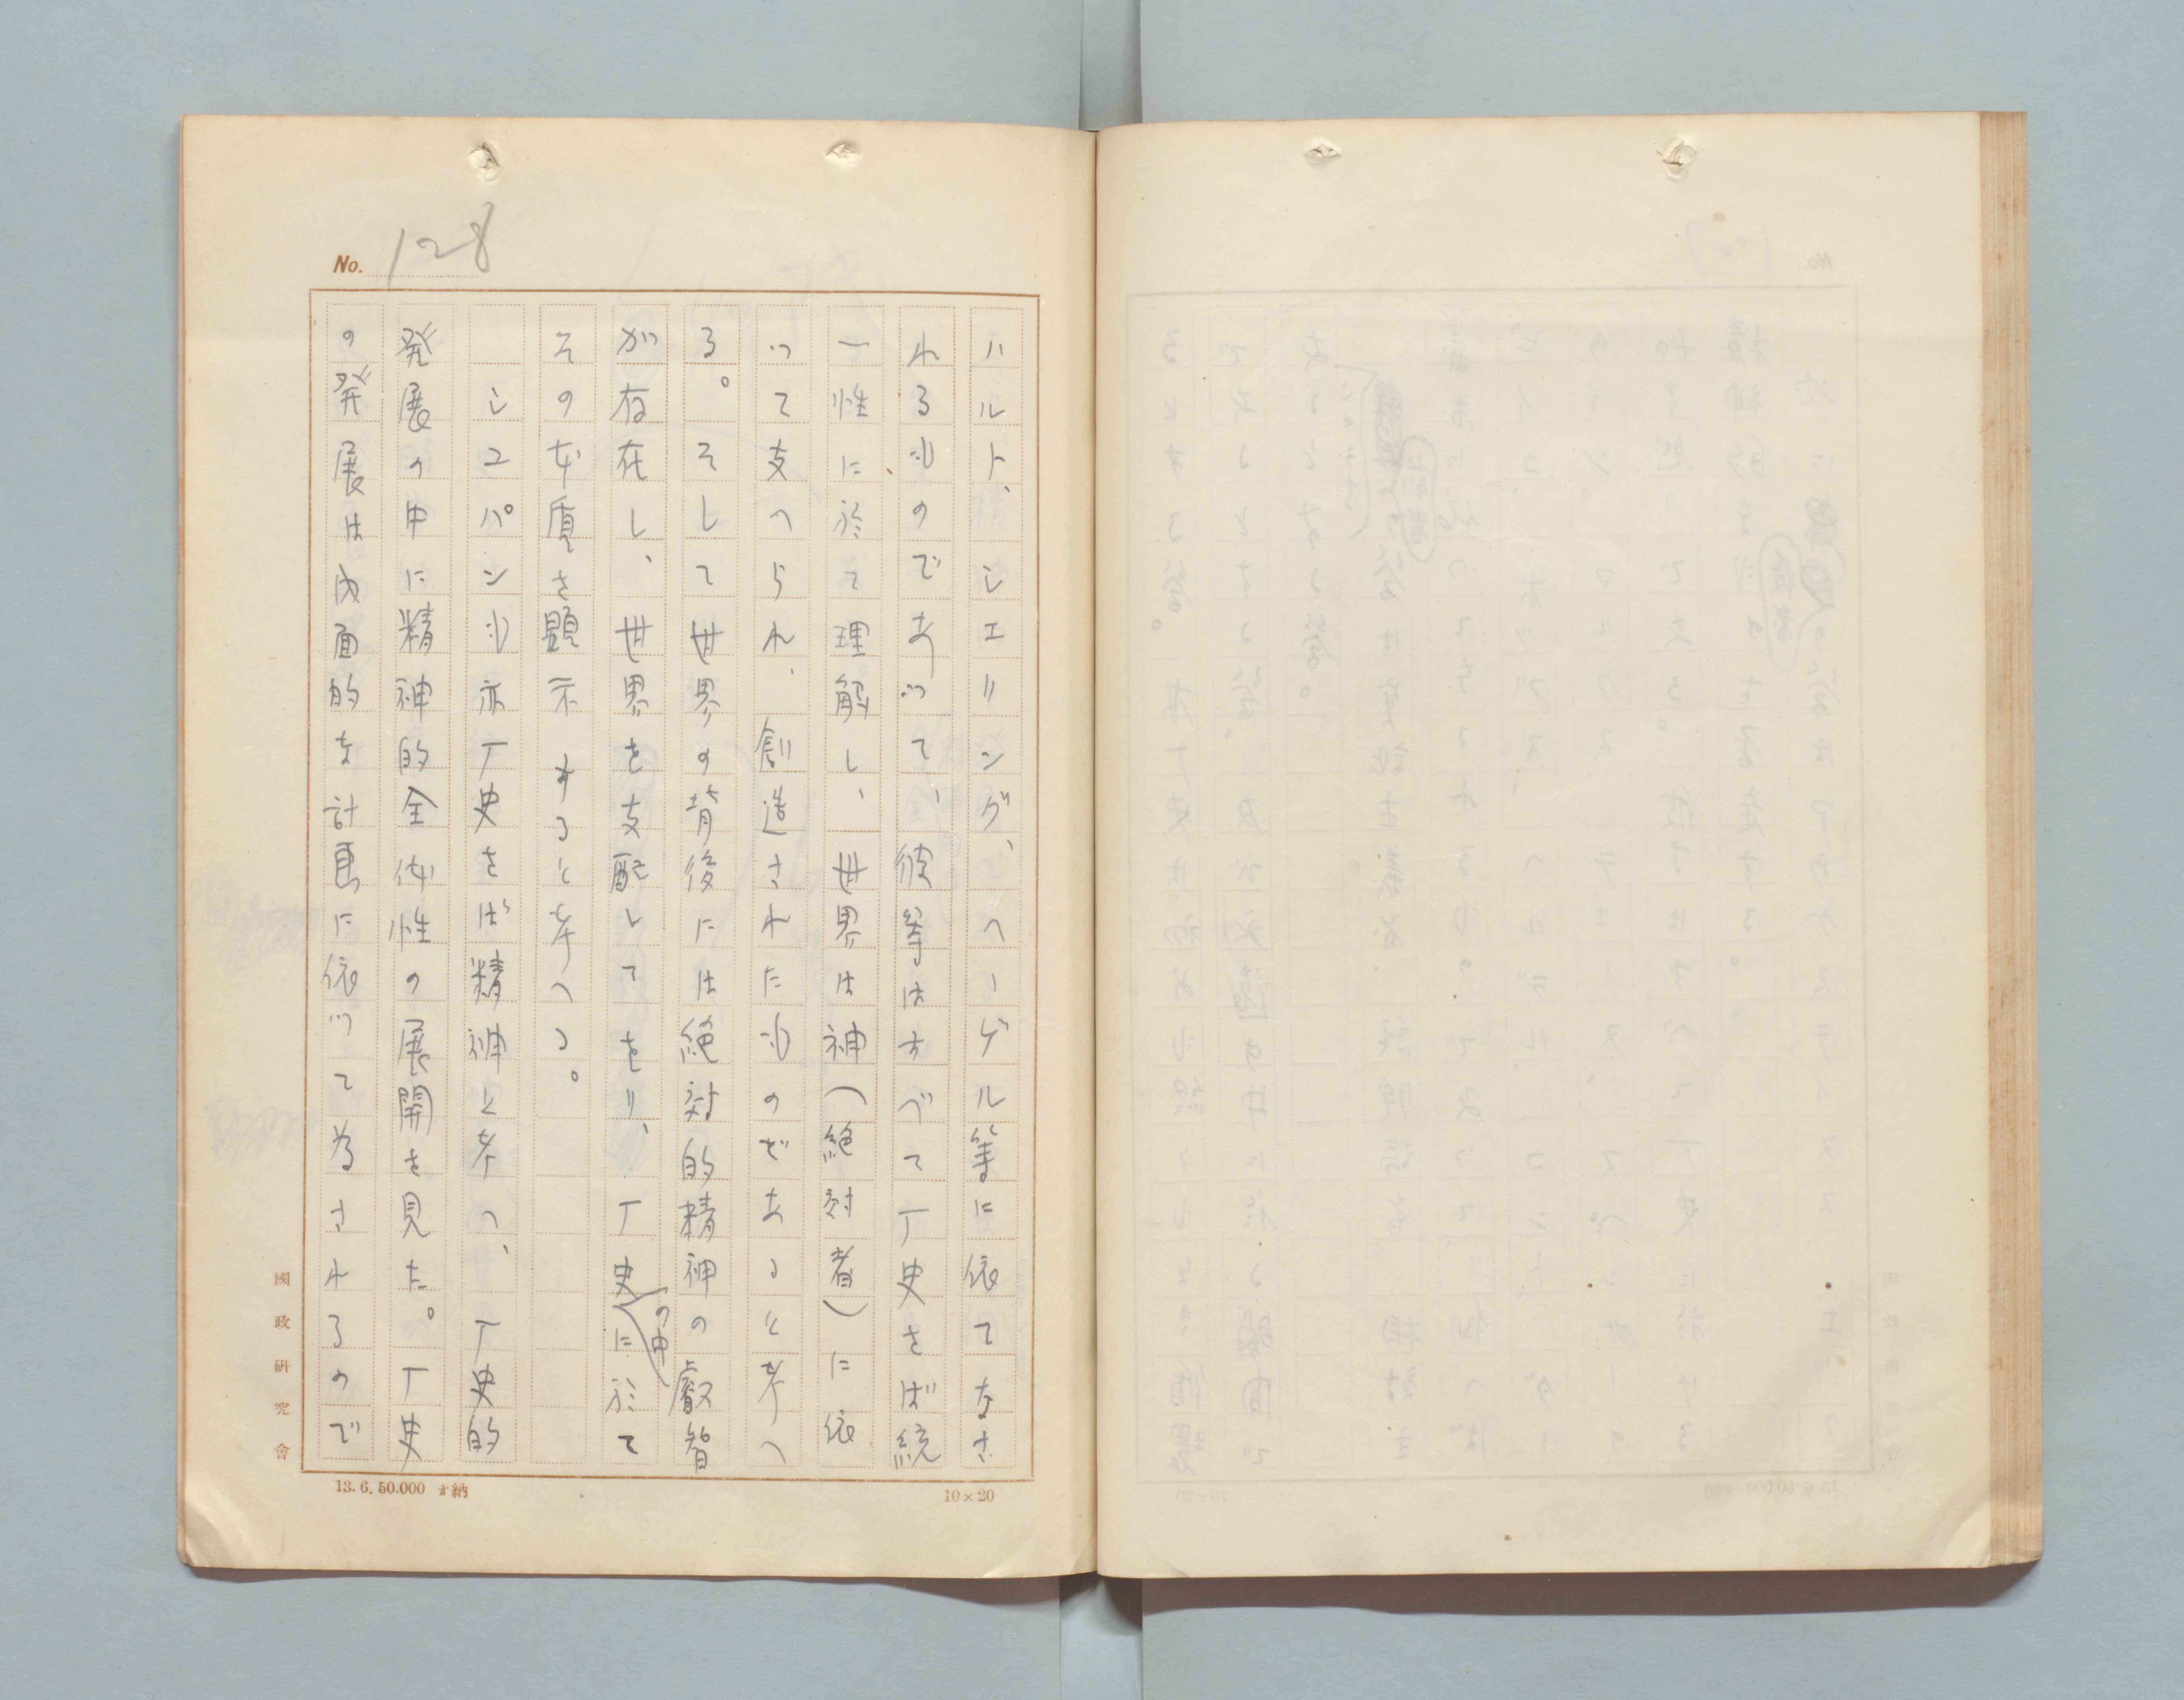 No. 128
ハルト、シエリング、ヘーゲル等に依てなさ
れるものであつて、彼等はすべて丁史をば統
一性に於て理解し、世界は神(絶対者)に依
つて支へられ、創造されたものであると考へ
る。そして世界の背後には絶対的精神の叡智
が存在し、世界を支配してをり、丁史の中に於て
その本質を顕示すると考へる。
シユパンも亦丁史をば精神と考へ、丁史的
発展の中に精神的全体性の展開を見た。丁史
の発展は内面的な計画に依つて為されるので
國政研究會
13.6.50.000 納
10×20